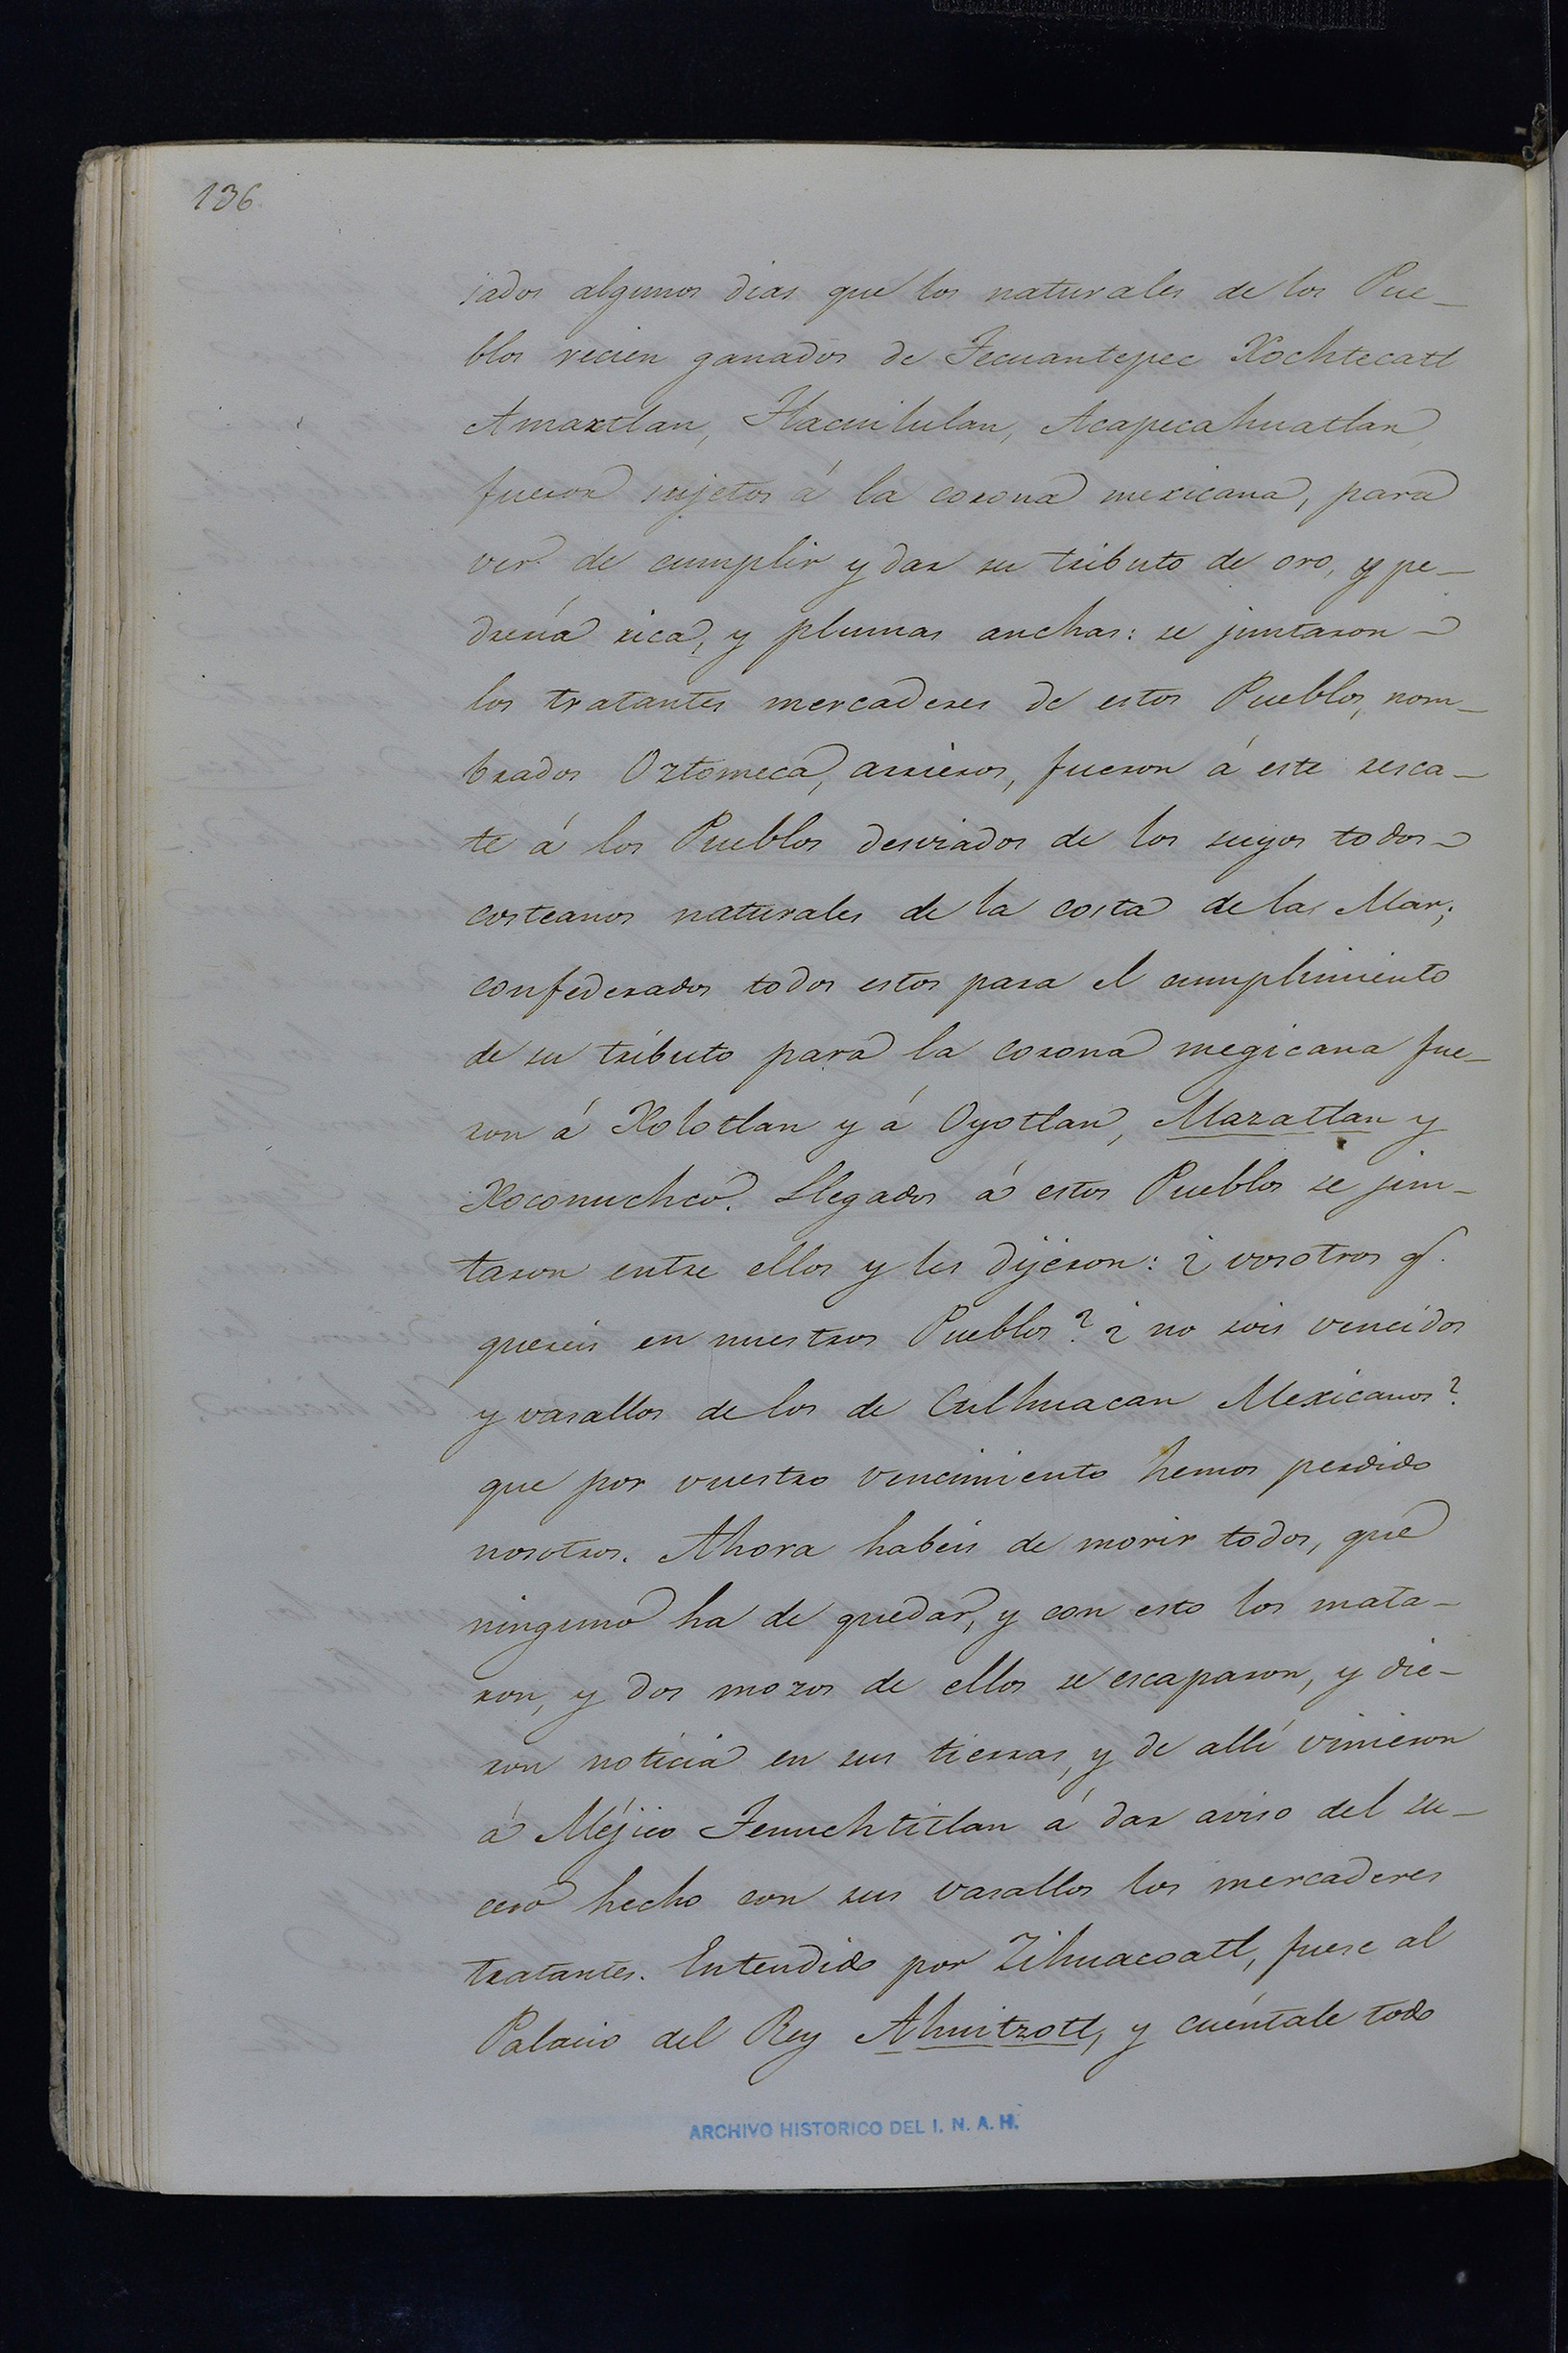 136
sados algunos dias que los naturales de los Pue-
blos recien ganados de Tecuantepec Xochtecatl
Amaxtlan, Tlacuilulan, Acapecahuatlan,
fueron sujetos á la corona mexicana, para
ver de cumplir y dar su tributo de oro, y pe-
drería rica, y plumas anchas: se juntaron
los tratantes mercaderes de estos Pueblos, nom-
brados Oztomeca, arrieros, fueron á este resca-
te á los Pueblos desviados de los suyos todos
costeanos naturales de la costa de la Mar;
confederados todos estos para el cumplimiento
de su tributo para la corona megicana fue-
ron á Xolotlan y á Oyotlan, Mazatlan y
Xoconuchco. Llegados á estos Pueblos se jun-
taron entre ellos y les dijeron: ¿vosotros q.
quereis en nuestros Pueblos? ¿no sois vencidos
y vasallos de los de Culhuacan Mexicanos?
que por vuestro vencimiento hemos perdido
nosotros. Ahora habeis de morir todos, que
ninguno ha de quedar, y con esto los mata-
ron, y dos mozos de ellos se escaparon, y die-
ron noticia en sus tierras, y de allí vinieron
á Méjico Tenuchtitlan á dar aviso del su-
ceso hecho con sus vasallos los mercaderes
tratantes. Entendido por Zihuacoatl, fuese al
Palacio del Rey Ahuitzotl, y cuéntale todo
ARCHIVO HISTORICO DEL I. N. A. H.